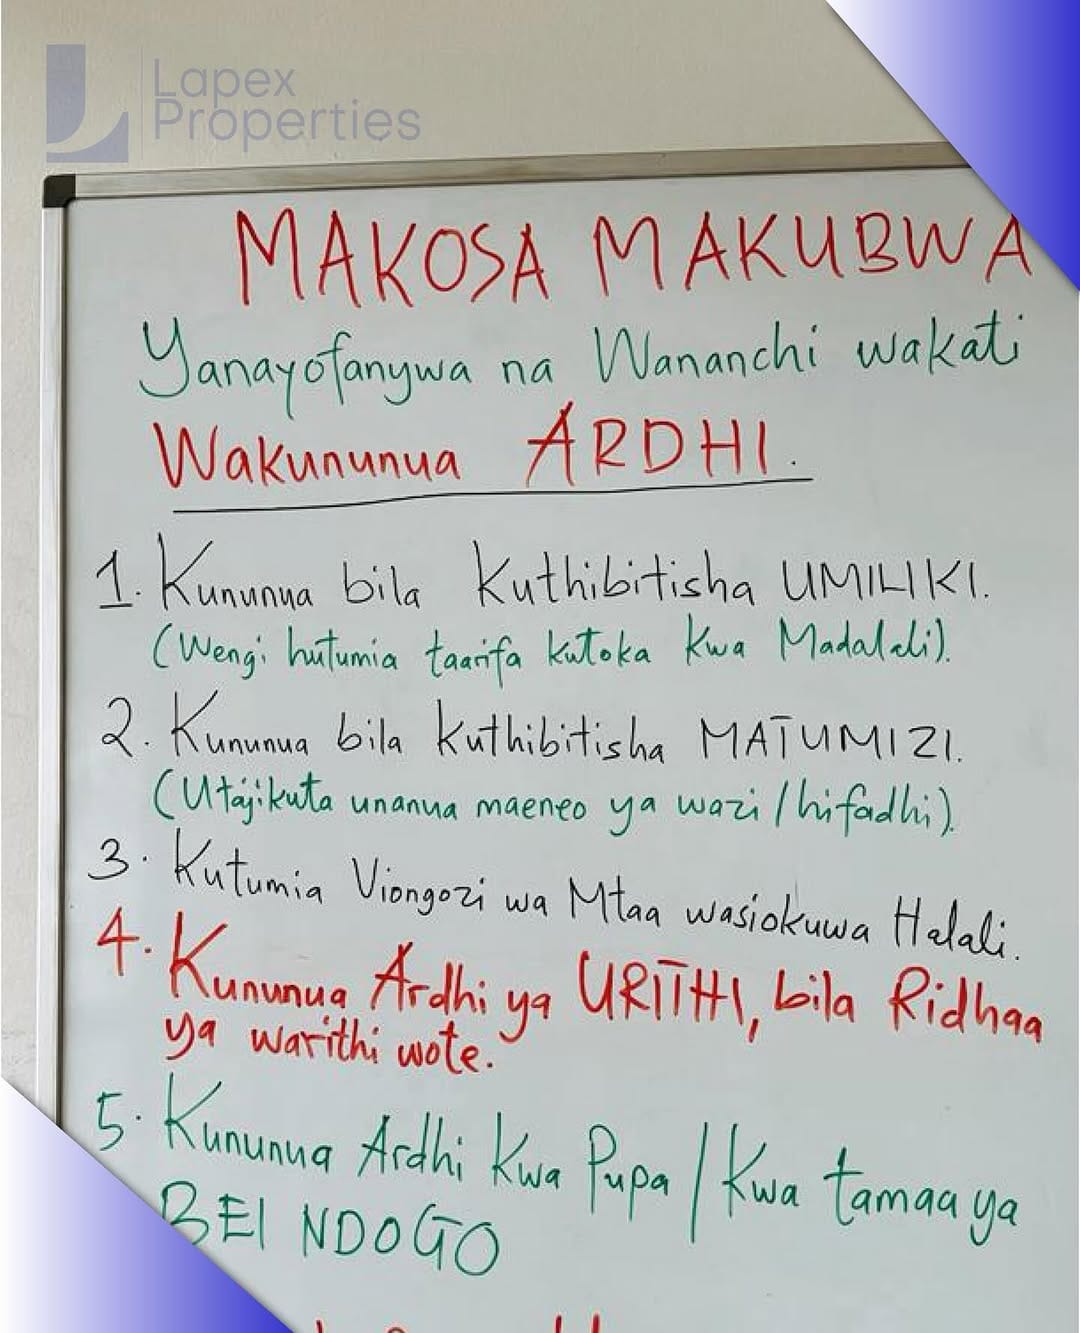 Lapex
Properties
MAKOSA MAKUBWA
Yanayofanywa na Wananchi wakati
Wakununua ARDHI.
1. Kununua bila Kuthibitisha UMILIKI.
(Wengi hutumia taarifa kutoka kwa Madalali).
2. Kununua bila kuthibitisha MATUMIZI.
(Utajikuta unanua maeneo ya wazi/hifadhi).
3. Kutumia Viongozi wa Mtaa wasiokuwa Halali.
4. Kununua Ardhi ya URITHI, bila Ridhaa
ya warithi wote.
5. Kununua Ardhi Kwa Pupa / Kwa tamaa ya
BEI NDOGO